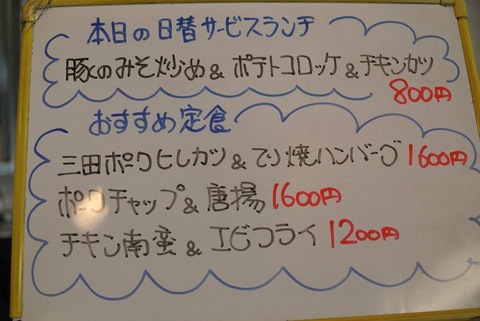 本日の日替サービスランチ
豚のみそ炒め & ポテトコロッケ & チキンカツ
800円
おすすめ定食
三田ポークヒレカツ & てり焼ハンバーグ 1600円
ポークチャップ & 唐揚 1600円
チキン南蛮 & エビフライ 1200円